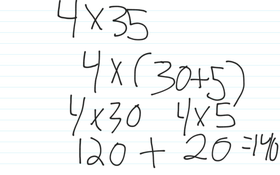 4×35
4×(30+5)
4×30 4×5
120 + 20 =140